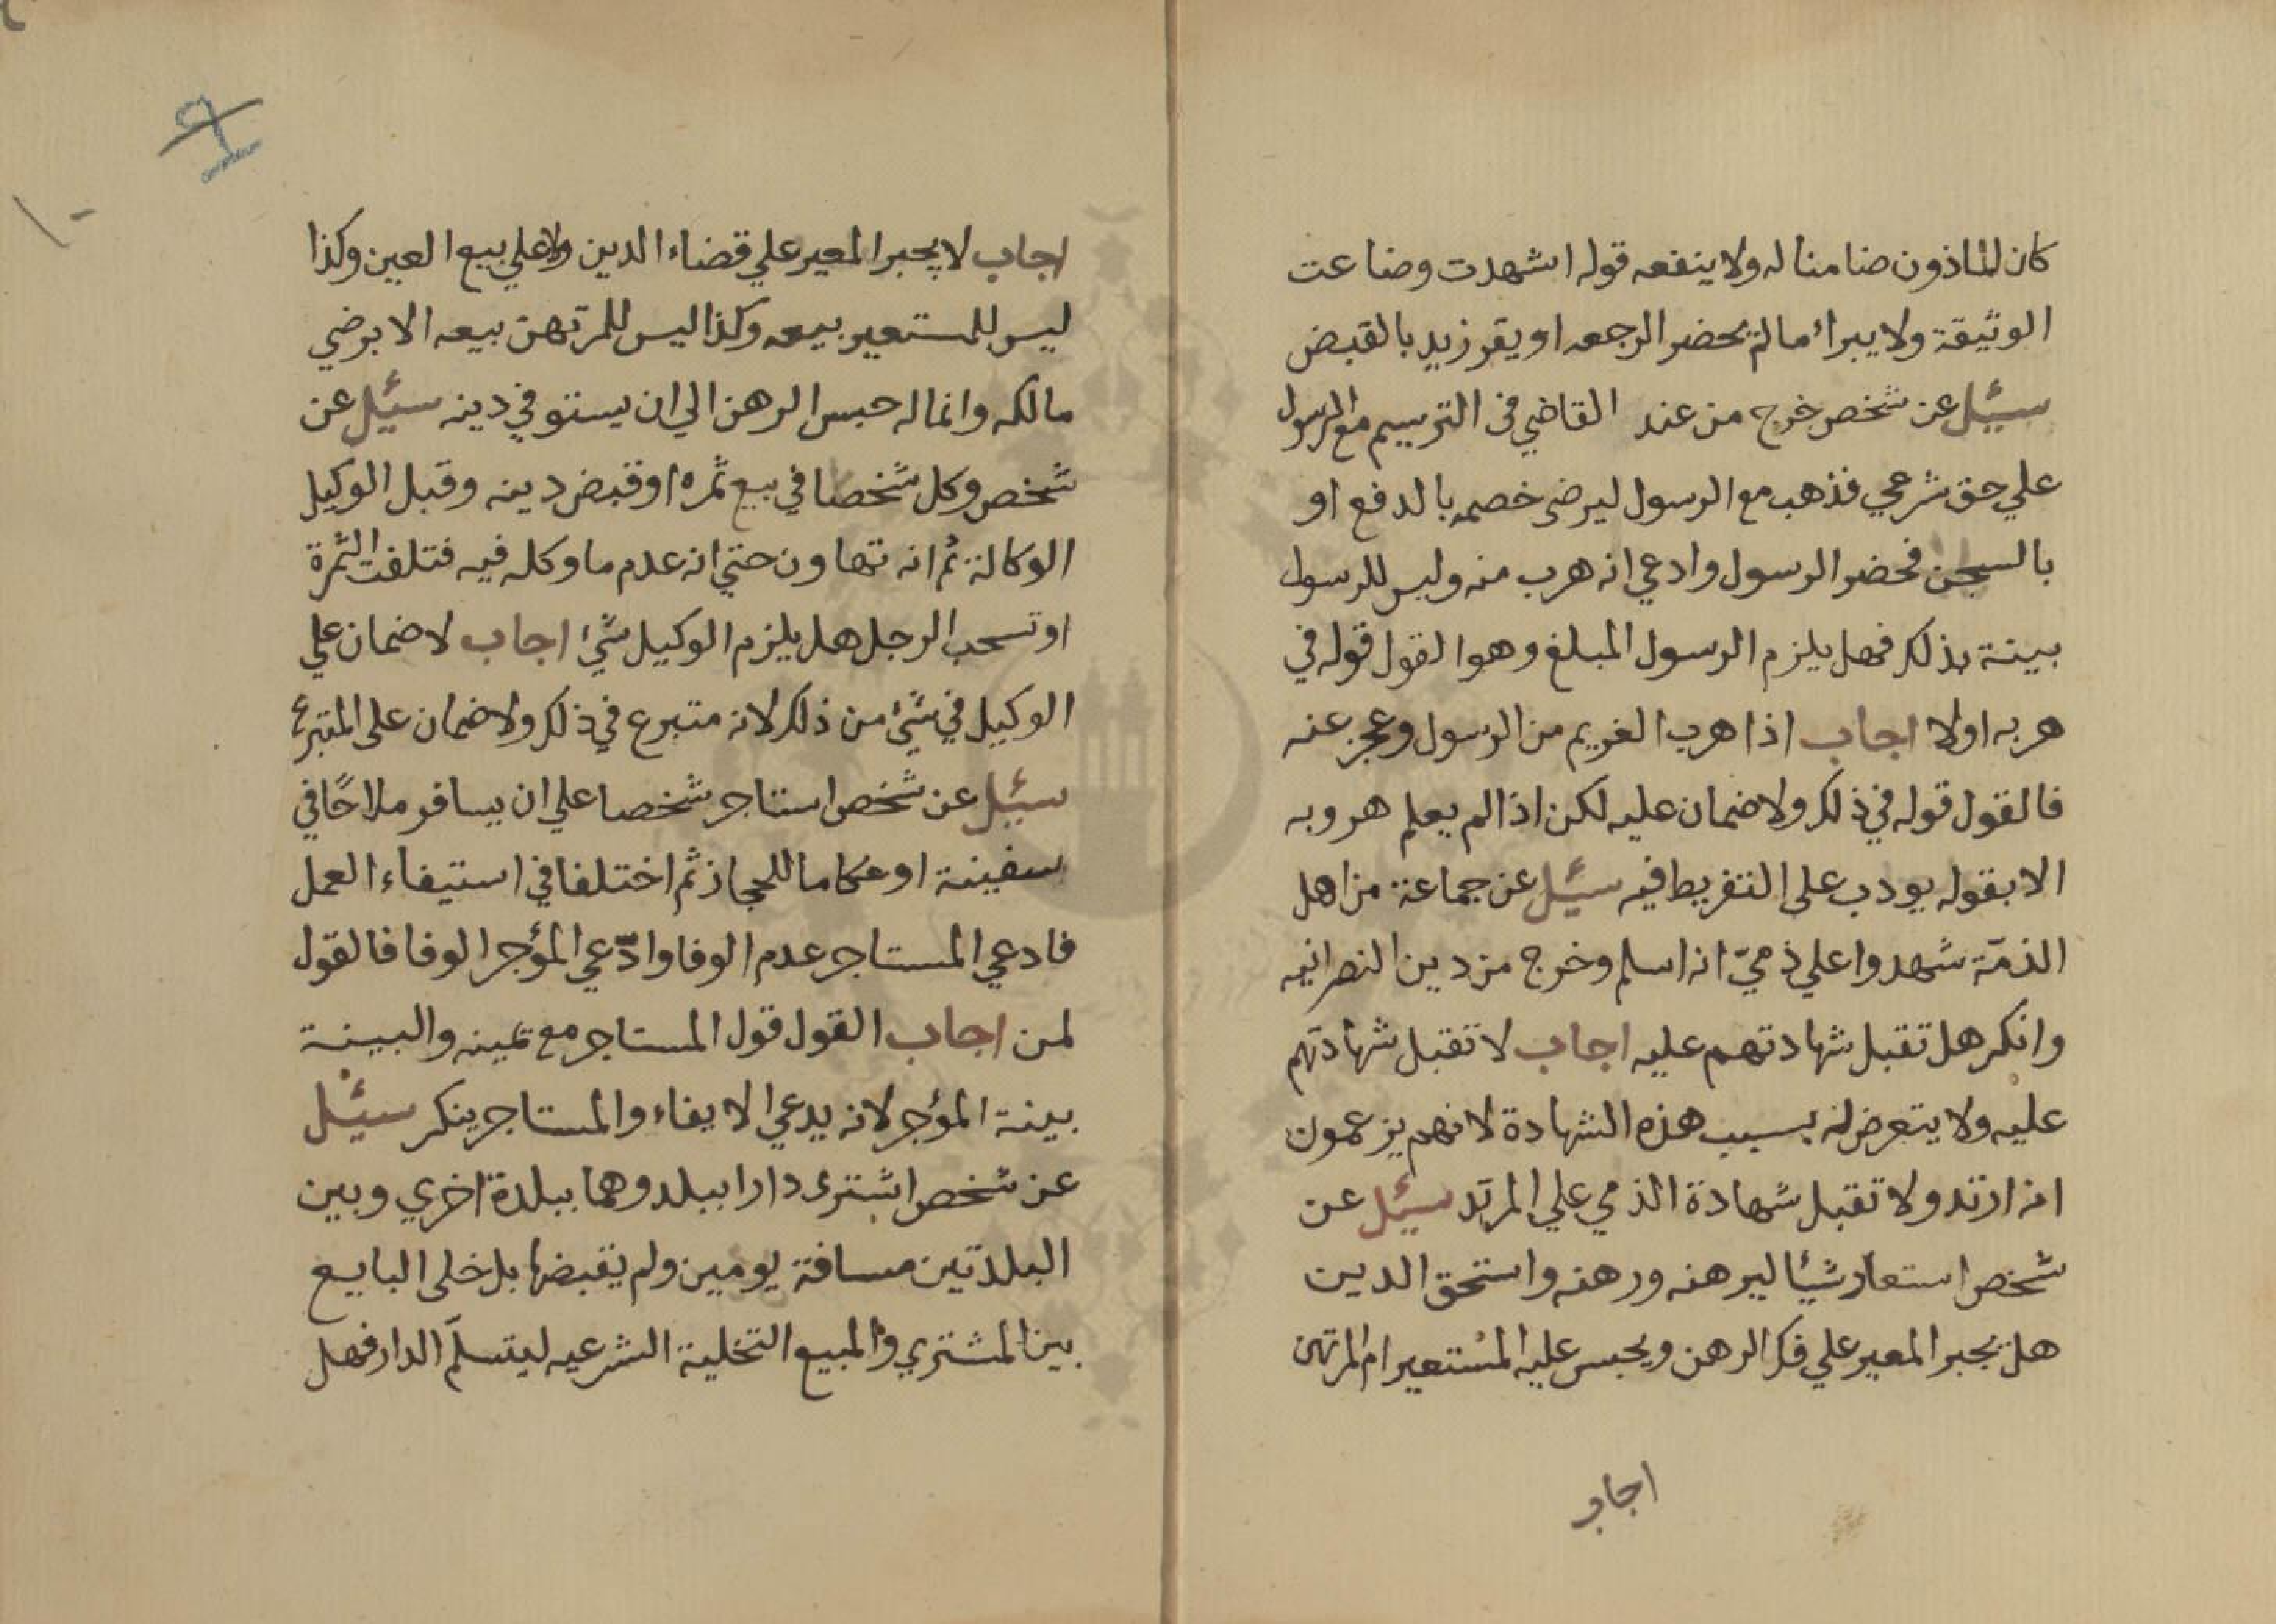 كان الماذون ضامنا له ولا ينفعه قوله اشهدت وضاعت
الوثيقة ولا يبرأ ما لم يحضر الرجعه او يقر زيد بالقبض
سئيل عن شخص خرج من عند القاضي في الترسيم مع الرسول
علي حق شرعي فذهب مع الرسول ليرضى خصمه بالدفع او
بالسجن فحضر الرسول وادعي انه هرب منه وليس للرسول
بينة بذلك فهل يلزم الرسول المبلغ وهو القول قوله في
هربه اولا اجاب اذا هرب الغريم من الرسول وعجز عنه
فالقول قوله في ذلك ولا ضمان عليه لكن اذا لم يعلم هروبه
الا بقوله يودب على التفريط فيه سئيل عن جماعة من اهل
الذمّة شهدوا علي ذميّ انه اسلم وخرج من دين النصرانيه
وانكر هل تقبل شهادتهم عليه اجاب لا تقبل شهادتهم
عليه ولا يتعرض له بسبب هذه الشهادة لانهم يزعمون
انه ارتد ولا تقبل شهادة الذمي علي المرتد سئيل عن
شخص استعار شيئا ليرهنه ورهنه واستحق الدين
هل يجبر المعير علي فك الرهن ويحبس عليه المستعير ام المرتهن
اجاب
اجاب لا يجبر المعير علي قضاء الدين ولا علي بيع العين وكذا
ليس للمستعير بيعه وكذا ليس للمرتهن بيعه الا برضي
مالكه وانما له حبس الرهن الي ان يستوفي دينه سئيل عن
شخص وكل شخصا في بيع ثمره او قبض دينه وقبل الوكيل
الوكالة ثم انه تهاون حتي انه عدم ما وكله فيه فتلفت الثمرة
او تسحب الرجل هل يلزم الوكيل شئ اجاب لا ضمان علي
الوكيل في شئ من ذلك لانه متبرع في ذلك ولا ضمان على المتبرع
سئيل عن شخص استاجر شخصا علي ان يسافر ملاحًا في
سفينة او عكاما للحجاز ثم اختلفا في استيفاء العمل
فادعي المستاجر عدم الوفا وادّعي المؤجر الوفا فالقول
لمن اجاب القول قول المستاجر مع يمينه والبينة
بينة المؤجر لانه يدعي الايفاء والمستاجر ينكر سئيل
عن شخص اشترى دارا ببلد وهما ببلدة اخري وبين
البلدتين مسافة يومين ولم يقبضها بل خلى البايع
بين المشتري والمبيع التخلية الشرعيه ليتسلّم الدار فهل